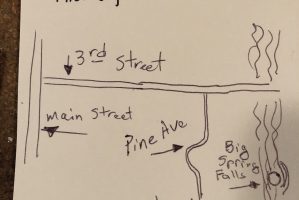 3rd Street
Main Street
Pine Ave
Big
Spring
Falls